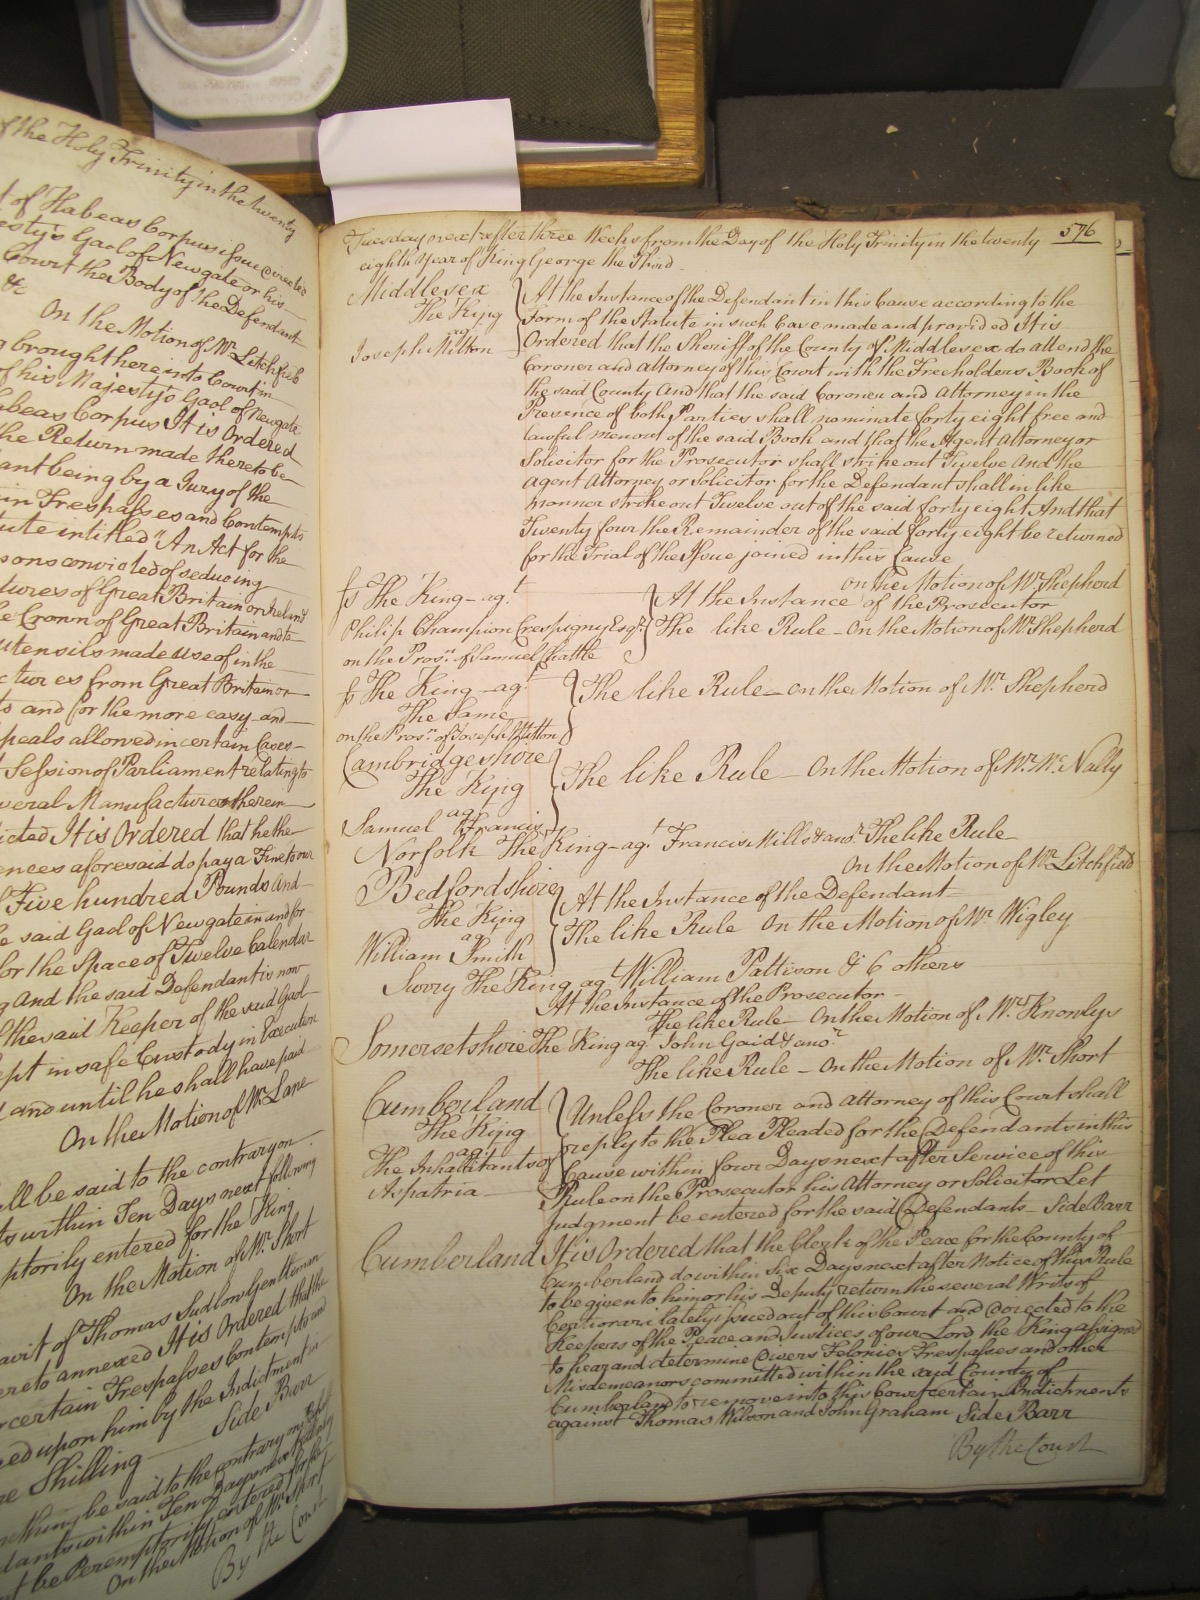 of the Holy Trinity in the twenty
t of Habeas Corpus issue directed
esty's Gaol of Newgate or his
Court the Body of the Defendant
&c
On the Motion of Mr. Litchfield
g brought here into Court in
of his Majesty's Gaol of Newgate
abeas Corpus It is Ordered
the Return made thereto be
ant being by a Jury of the
in Trespasses and Contempts
tute intitled "An Act for the
sons convicted of seducing
tures of Great Britain or Ireland
e Crown of Great Britain and to
utensils made use of in the
ctures from Great Britain or
ts and for the more easy and
peals allowed in certain Cases
Session of Parliament relating to
veral Manufactures therein
icted It is Ordered that he the
ences aforesaid do pay a Fine to our
Five hundred Pounds And
e said Gaol of Newgate in and for
for the Space of Twelve Calendar
g And the said Defendant is now
f the said Keeper of the said Gaol
ept in safe Custody in Execution
and until he shall have paid
On the Motion of Mr. Lane
all be said to the contrary on
ts within Ten Days next following
ptorily entered for the King
On the Motion of Mr. Short
avit of Thomas Sudlow Gentleman
ereto annexed It is Ordered that the
r certain Trespasses Contempts and
ed upon him by the Indictment in
ne Shilling Side Barr
nothing be said to the contrary on
dants within Ten Days next following
t be Peremptorily entered for the
On the Motion of Mr. Short
By the Court
Tuesday next after three Weeks from the Day of the Holy Trinity in the twenty 576
eighth Year of King George the Third
Middlesex
The King
agt
Joseph Mitton
At the Instance of the Defendant in this Cause according to the
Form of the Statute in such Case made and provided It is
Ordered that the Sheriff of the County of Middlesex do attend the
Coroner and Attorney of this Court with the Freeholders Book of
the said County And that the said Coroner and Attorney in the
Presence of both Parties shall nominate forty eight free and
lawful men out of the said Book and that the Agent Attorney or
Solicitor for the Prosecutor shall strike out Twelve And the
Agent Attorney or Solicitor for the Defendant shall in like
manner strike out Twelve out of the said forty eight And that
Twenty four the Remainder of the said forty eight be returned
for the Trial of the Issue joined in this Cause
On the Motion of Mr. Shepherd
The King agt
Philip Champion Crespigny Esqr.
on the Prosn. of Samuel
At the Instance of the Prosecutor
The like Rule On the Motion of Mr. Shepherd
The King agt
The Same
on the Prosn. of Joseph Mitton
The like Rule On the Motion of Mr. Shepherd
Cambridgeshire
The King
agt
Samuel Francis
The like Rule On the Motion of Mr. Mc. Nally
Norfolk The King agt Francis Mills & anor. The like Rule
On the Motion of Mr. Litchfield
Bedfordshire
The King
agt
William Smith
At the Instance of the Defendant
The like Rule On the Motion of Mr. Wigley
Surry The King agt William Pattison & 6 others
At the Instance of the Prosecutor
The like Rule On the Motion of Mr. Knowlys
Somersetshire The King agt John Gaid & anor.
The like Rule On the Motion of Mr. Short
Cumberland
The King
agt
The Inhabitants of
Aspatria
Unless the Coroner and Attorney of this Court shall
reply to the Plea Pleaded for the Defendants in this
Cause within four Days next after Service of this
Rule on the Prosecutor his Attorney or Solicitor Let
Judgment be entered for the said Defendants Side Barr
Cumberland It is Ordered that the Clerk of the Peace for the County of
Cumberland do within Six Days next after Notice of this Rule
to be given to him or his Deputy return the several Writs of
Certiorari lately issued out of this Court and directed to the
Keepers of the Peace and Justices of our Lord the King assigned
to hear and determine Divers Felonies Trespasses and other
Misdemeanors committed within the said County of
Cumberland to remove into this Court certain Indictments
against Thomas Wilson and John Graham Side Barr
By the Court